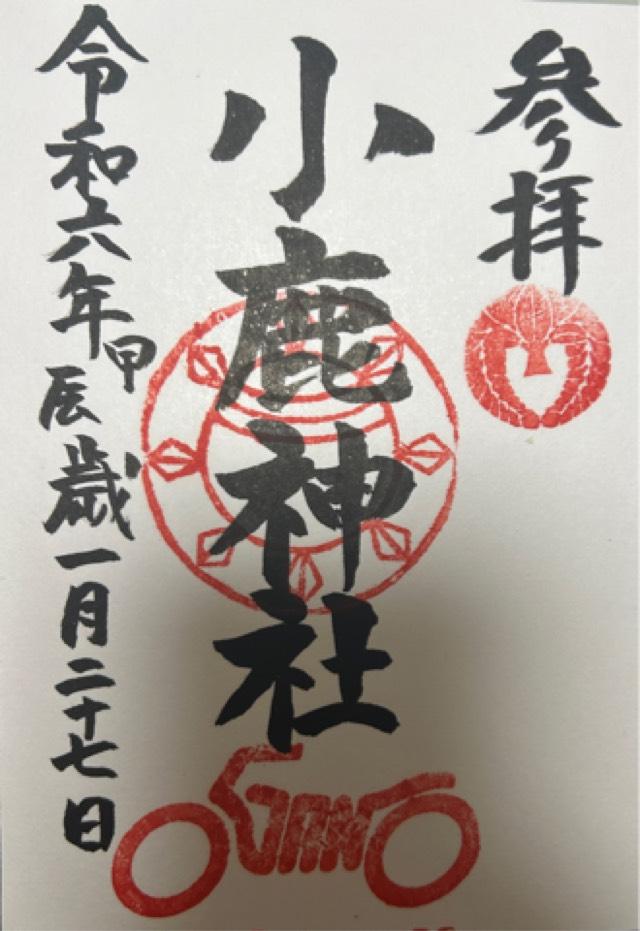 参拝
小鹿神社
令和六年甲辰歳一月二十七日